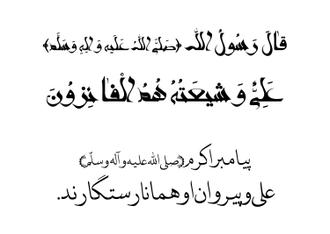 قالَ رَسُولُ اللّٰه ﴿صَلَّى اللّٰهُ عَلَيهِ وَ الِهِ وَسَلَّم﴾
عَلِيٌّ وَ شيعَتُهُ هُمُ الْفائِزُونَ
پیامبر اکرم (صلی الله علیه و آله وسلّم)
علی و پیروان او همانا رستگارند.